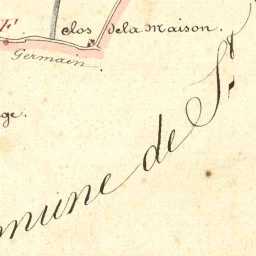 F. clos de la Maison.
Germain.
ge.
mune de St